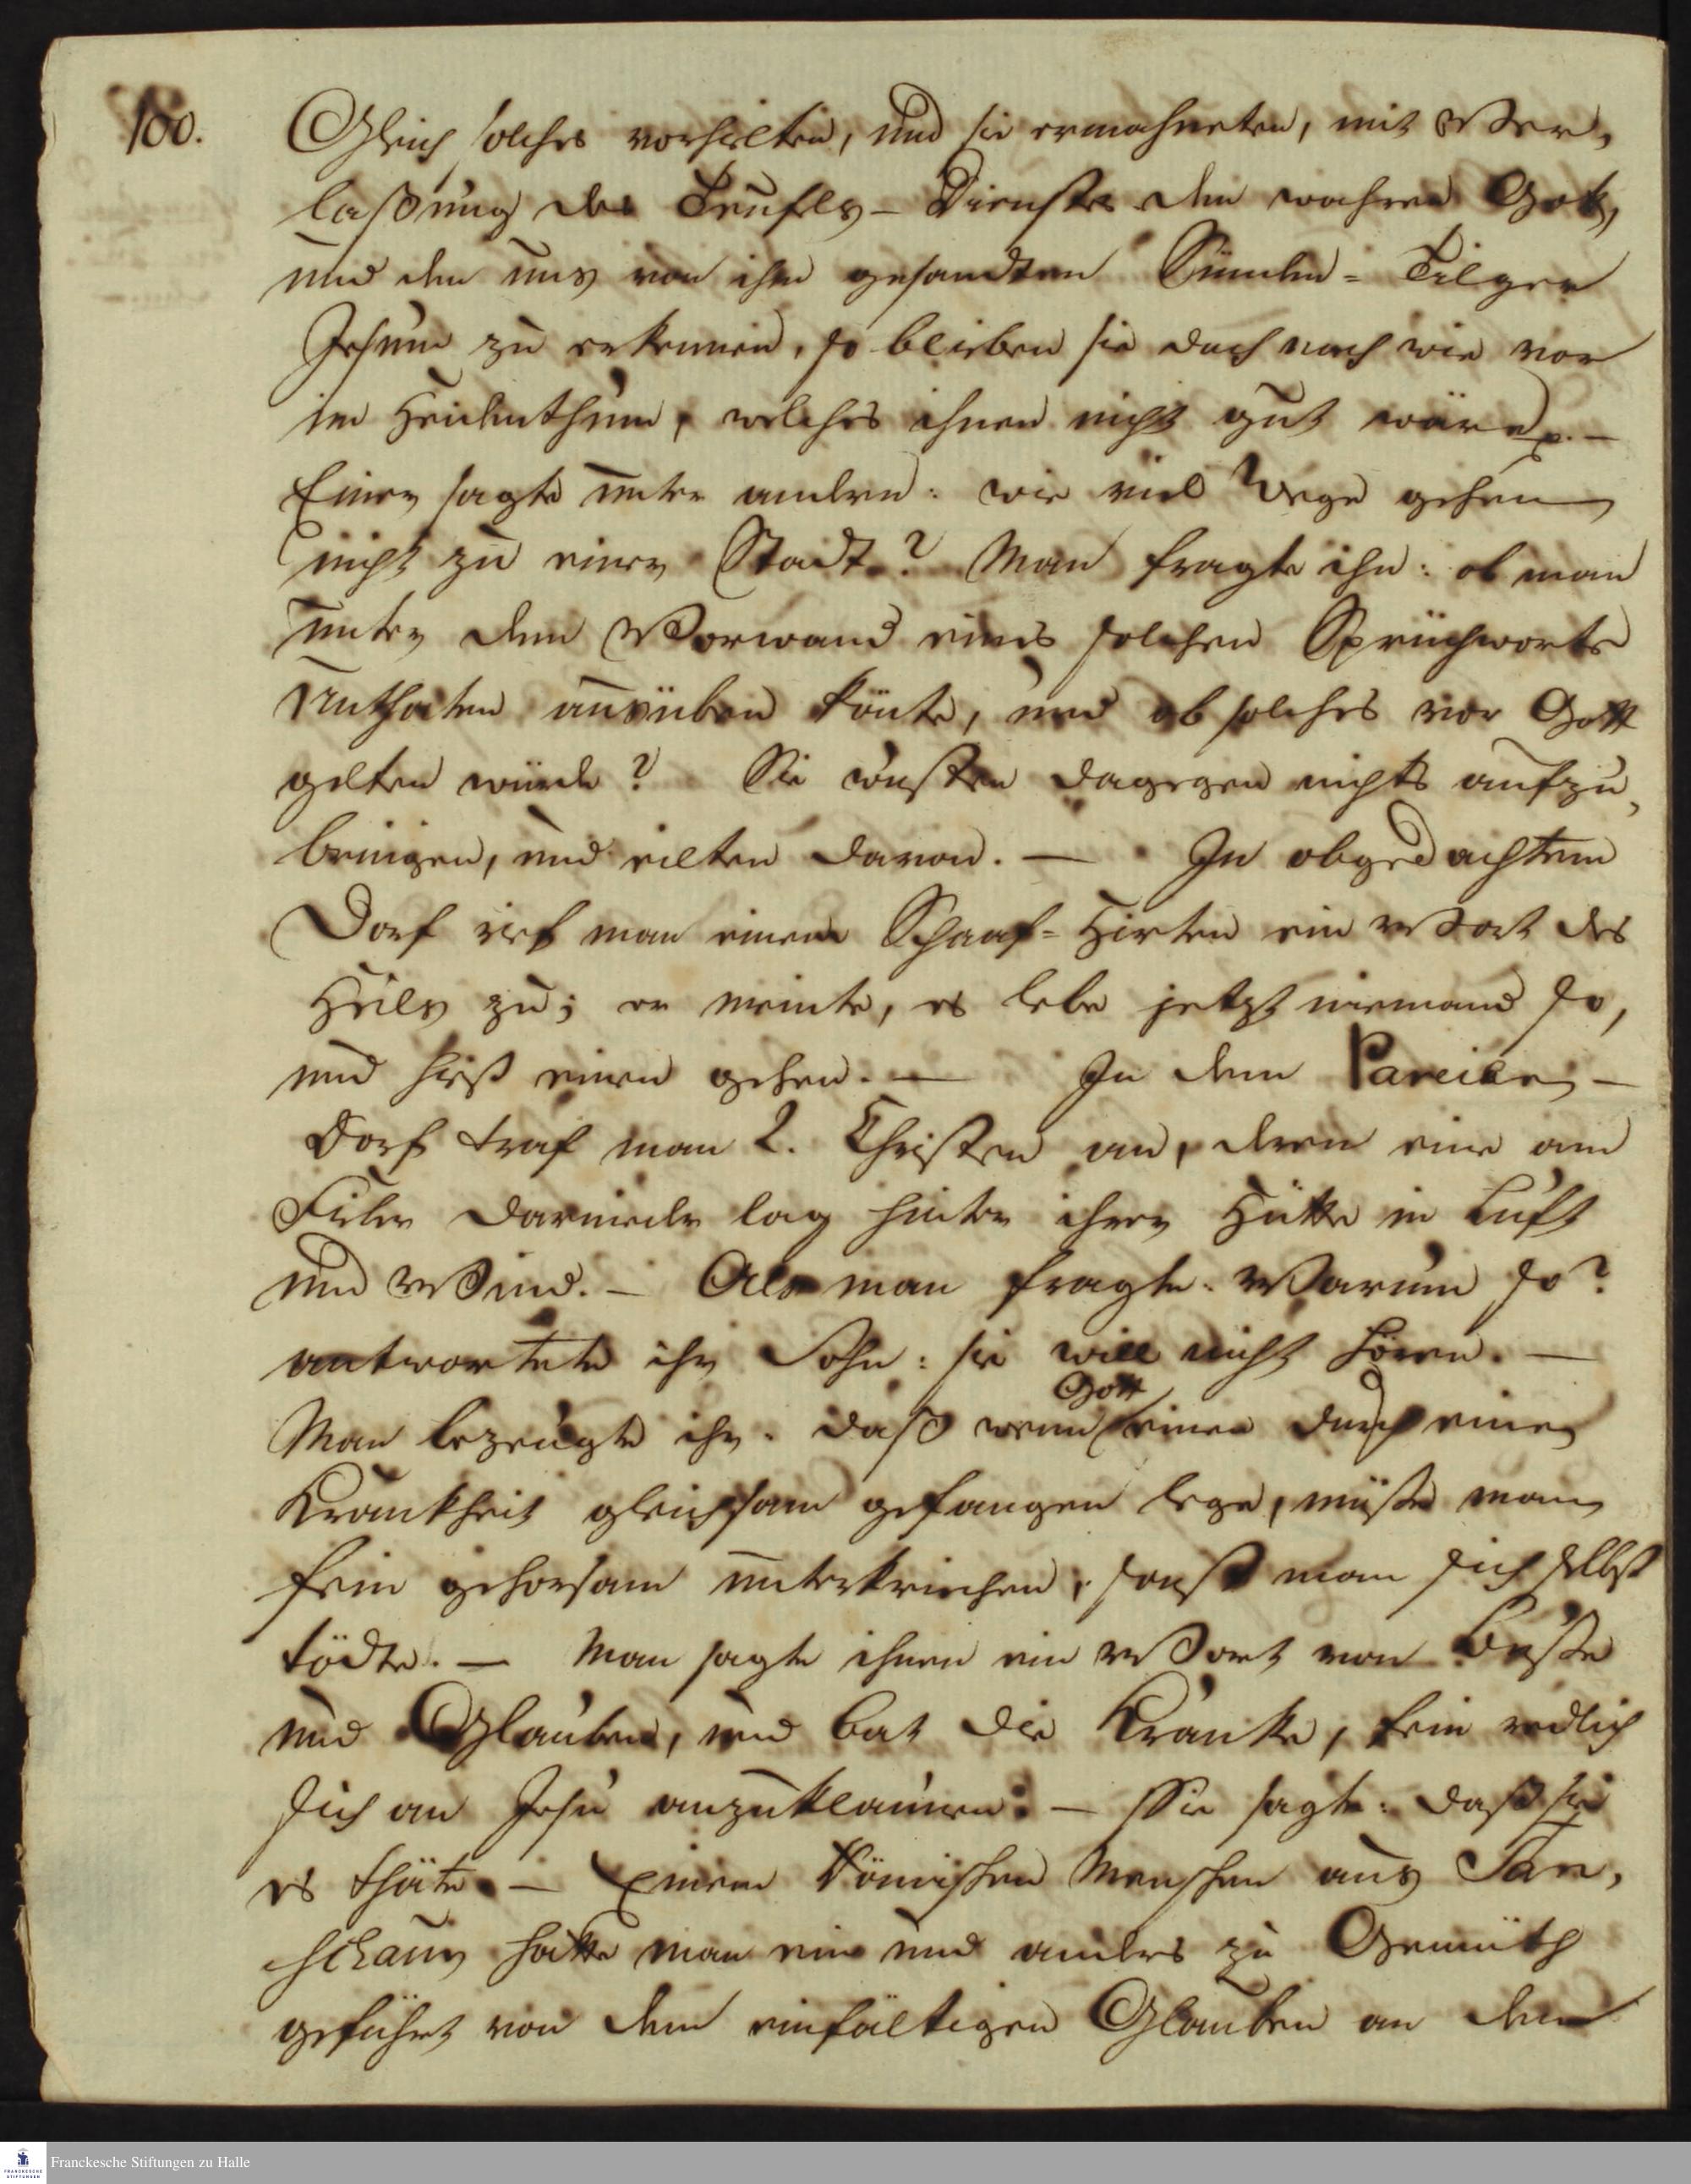 100.
Gleich solches vorhielten, und sie ermahneten, mit Ver,
laßung des Teufels-Dienstes den wahren Gott,
und den uns von ihm gesandten Sünden-Tilger
Jesum zu erkennen, so blieben sie doch nach wie vor
im Heidenthum, welches ihnen nicht gut wäre p. —
Einer sagte unter andern: wie viel Wege gehen
nicht zu einer Stadt? Man fragte ihn: ob man
unter dem Vorwand eines solchen Sprüchworts
Unthaten ausüben könte, und ob solches vor Gott
gelten würde? Sie wusten dagegen nichts aufzu,
bringen, und eilten davon. — In obgedachtem
Dorf rief man einem Schaaf-Hirten ein Wort des
Heils zu; er meinte, es lebe jetzt niemand so,
und hieß einen gehen. — In dem Pareier-
Dorf traf man 2. Christen an, deren eine am
Fieber darnieder lag hinter ihrer Hütte in Luft
und Wind. — Als man fragte: Warum so?
antwortete ihr Sohn: sie will nicht hören. —
Man bezeugte ihr: daß wenn Gott einen durch eine
Krankheit gleichsam gefangen lege, müste man
fein gehorsam unterkriechen, sonst man sich selbst
tödte. — Man sagte ihnen ein Wort von Buße
und Glauben, und bat die Kranke, fein redlich
sich an Jesu anzuklammern. — Sie sagte: daß sie
es thäte. — Einem Römischen Menschen aus Tan,
schaur hatte man ein und anders zu Gemüth
geführt von dem einfältigen Glauben an den
Franckesche Stiftungen zu Halle